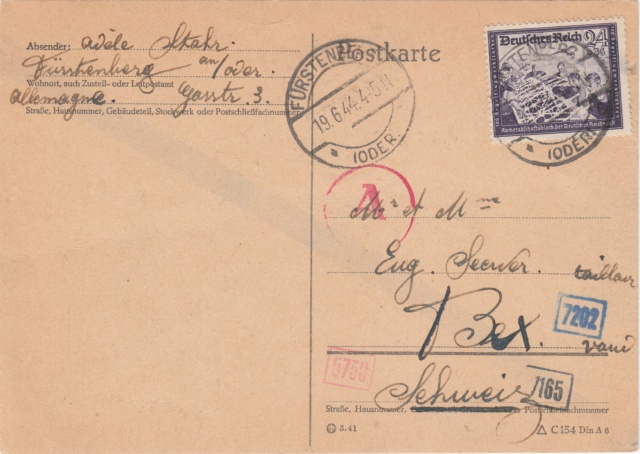 Postkarte
Absender: Adèle Stahr.
Fürstenberg an/oder.
Wohnort, auch Zustell- oder Leitpostamt
Allemagne. Gasstr. 3.
Straße, Hausnummer, Gebäudeteil, Stockwerk oder Postschließfachnummer
FÜRSTENBERG
19.6.44.4-5N
(ODER)
Deutsches Reich 24
Kameradschaftsblock der Deutschen Reichspost
(ODER)
A
Mr et Mme
Eug. tailleur
Bex. vaud
7202
5750
Schweiz
165
Straße, Hausnummer, Gebäudeteil, Stockwerk oder Postschließfachnummer
3.41
C 154 Din A 6